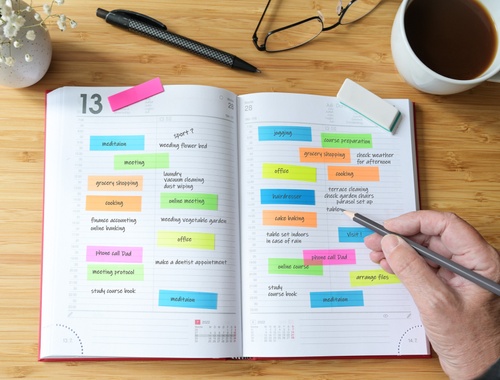 13
meditaion
sport ?
weeding flower bed
meeting
laundry
vacuum cleaning
dust wiping
grocery shopping
cooking
online meeting
finance accounting
online banking
weeding vegetable garden
office
phone call Dad
make a dentist appointment
meeting protocol
study course book
meditaion
jogging
course preparation
grocery shopping
check weather
for afternoon
office
cooking
terrace cleaning
check garden chairs
parasol set up
cake baking
table set indoors
in case of rain
phone call Dad
online course
arrange files
study
course book
meditaion